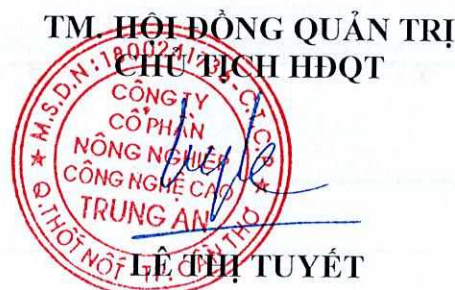 TM. HỘI ĐỒNG QUẢN TRỊ
CHỦ TỊCH HĐQT
CÔNG TY
CỔ PHẦN
NÔNG NGHIỆP
CÔNG NGHỆ CAO
TRUNG AN
Q.THỐT NỐT TP. CẦN THƠ
LÊ THỊ TUYẾT